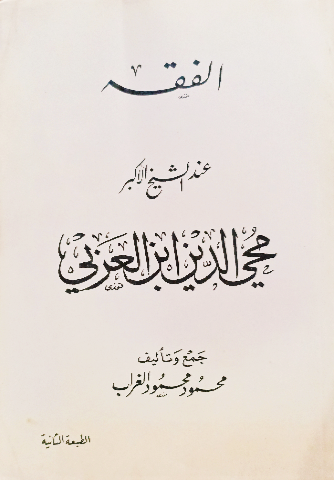 الفقه
عند الشيخ الأكبر
محي الدين ابن العربي
جمع وتأليف
محمود محمود الغراب
الطبعة الثانية